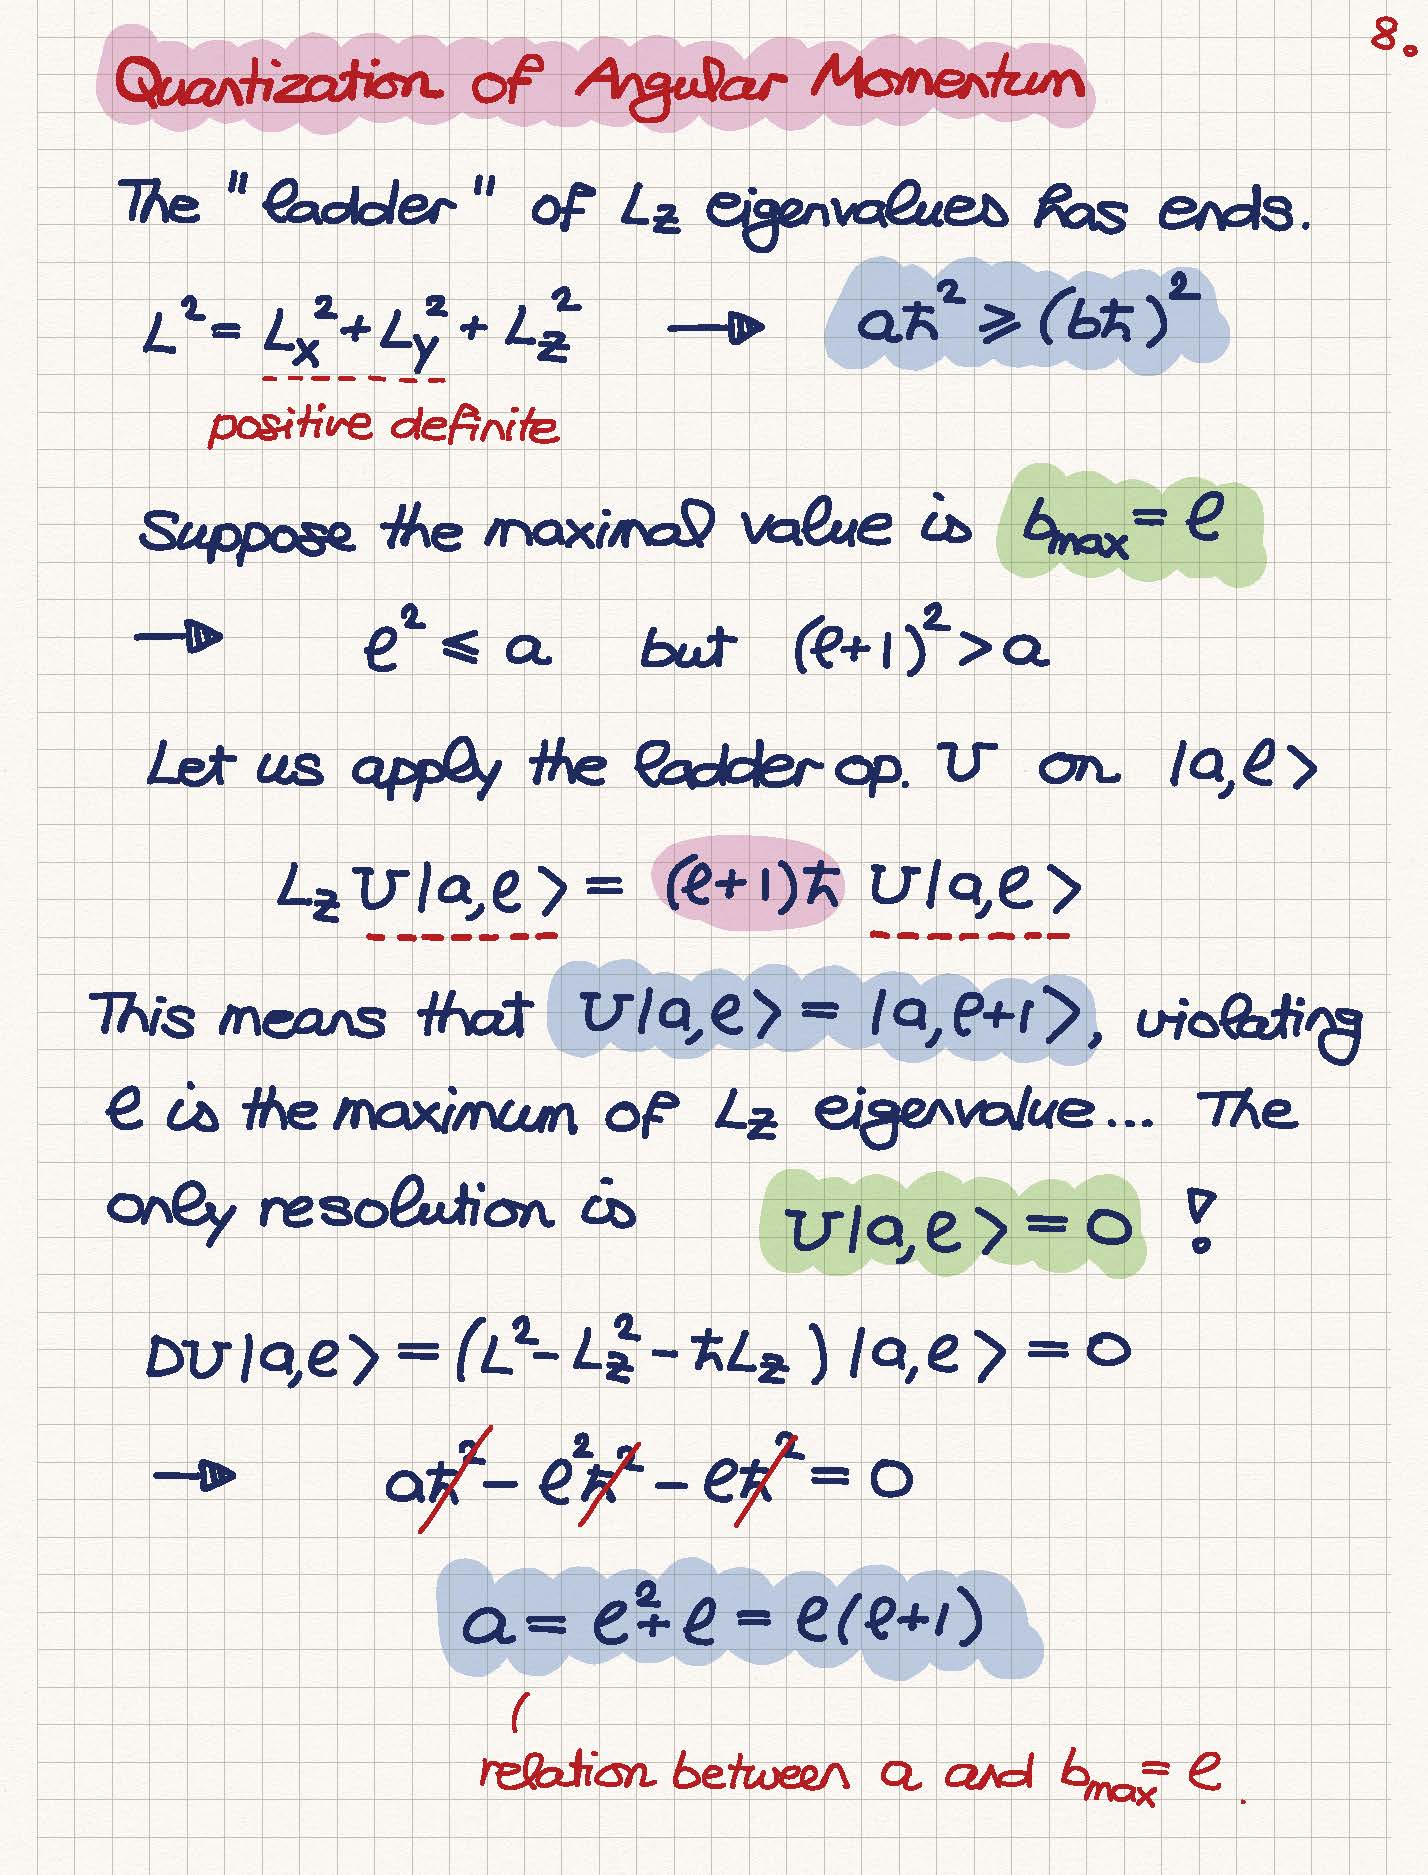 8.
Quantization of Angular Momentum
The "ladder" of Lz eigenvalues has ends.
L² = Lx² + Ly² + Lz² → aħ² ⩾ (bħ)²
positive definite
Suppose the maximal value is b_max = ℓ
→ ℓ² ⩽ a but (ℓ+1)² > a
Let us apply the ladder op. U on |a,ℓ>
Lz U|a,ℓ> = (ℓ+1)ħ U|a,ℓ>
This means that U|a,ℓ> = |a,ℓ+1>, violating
ℓ is the maximum of Lz eigenvalue... The
only resolution is U|a,ℓ> = 0 !
DU|a,ℓ> = (L² - Lz² - ħLz)|a,ℓ> = 0
→ aħ² - ℓ²ħ² - ℓħ² = 0
a = ℓ² + ℓ = ℓ(ℓ+1)
relation between a and b_max = ℓ.